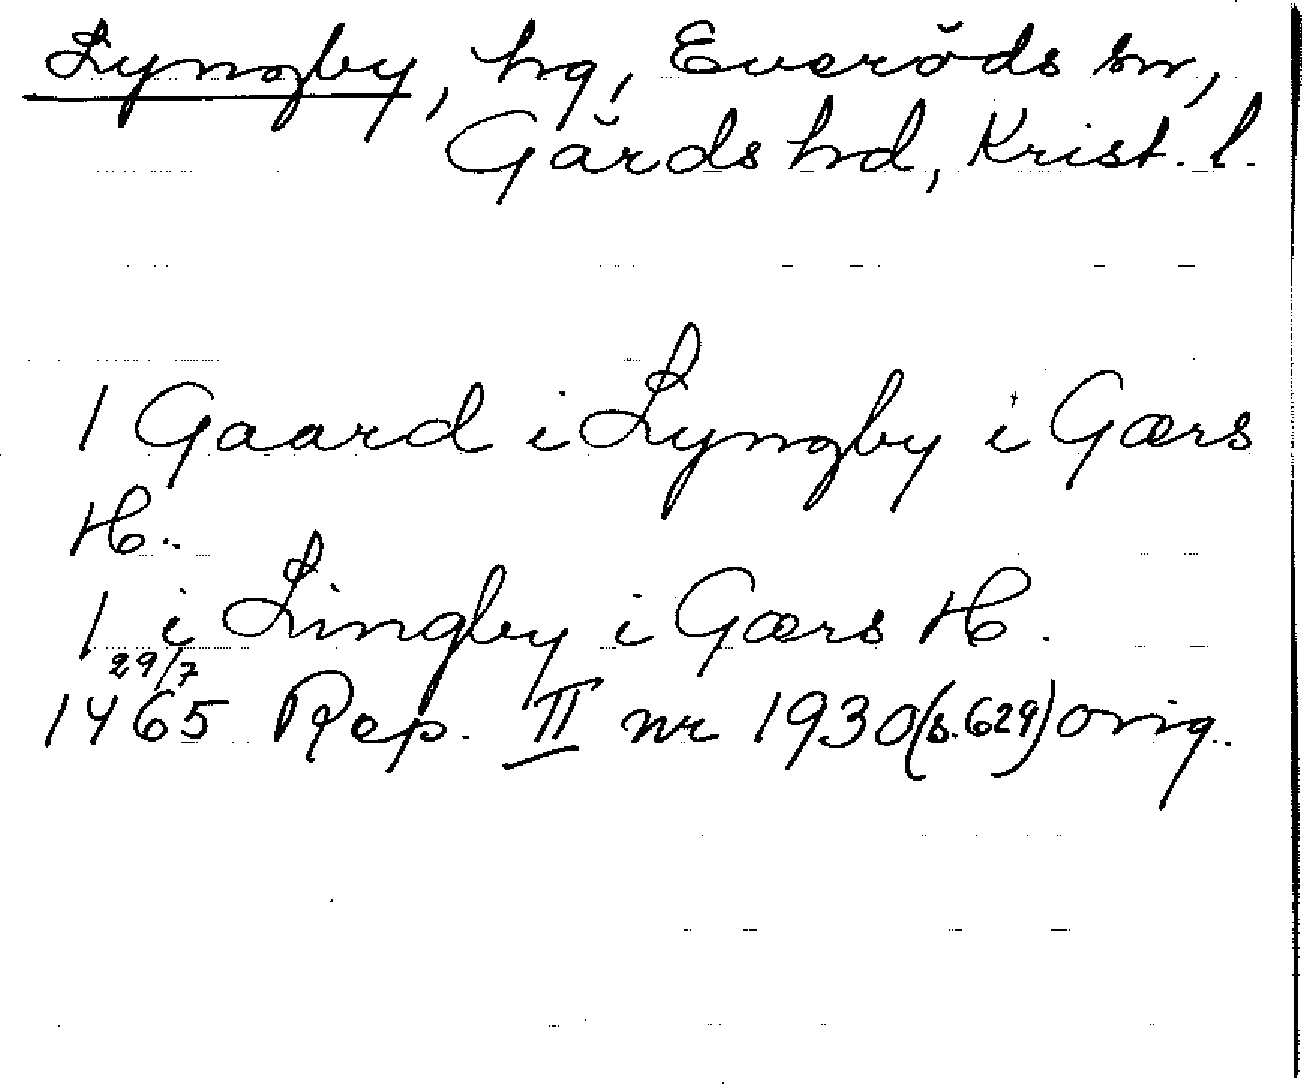 Lyngby, hg, Everöds sn,
Gärds hd, Krist. l.
1 Gaard i Lyngby i Gærs
H..
1 i Lingby i Gærs H.
29/7
1465 Rep. II nr 1930 (s. 629) orig.